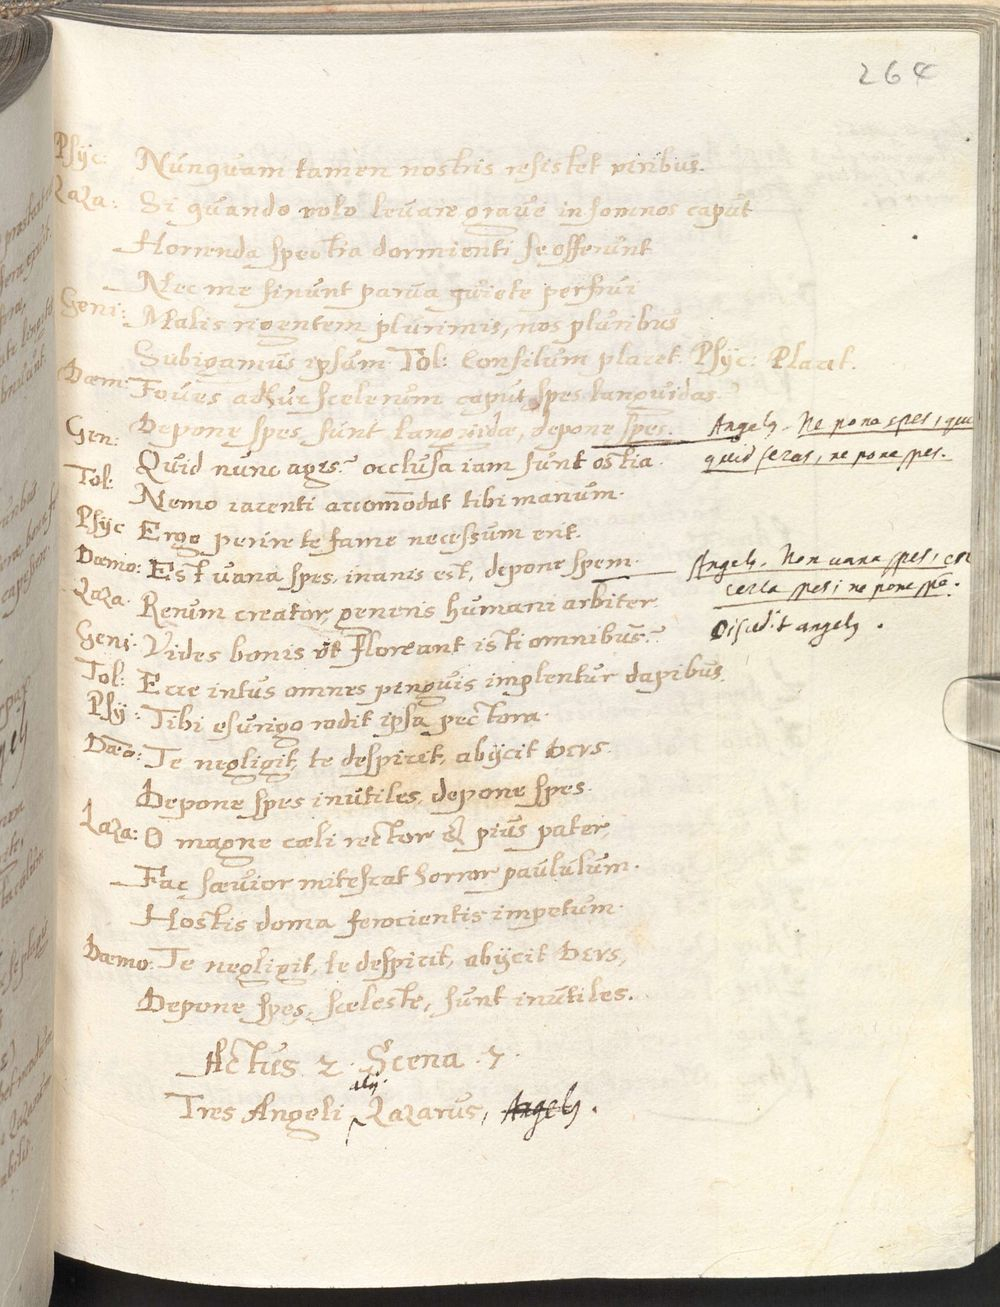 264
Psyc: Nunquam tamen nostris resistet viribus.
LaZa: Si quando volo levare grave insomnos caput
Horrenda spectra dormienti se offerunt
Nec me sinunt parva quiete perfrui
Geni: Malis rigentem plurimis, nos pluribus
Subigamus ipsum. Tol: Consilium placet. Psyc: Placet.
Dæm: Foves adhuc scelerum caput spes languidas?
Depone spes sunt languidæ, depone spes. Angely. Ne pone spes, que
Gen: Quid nunc agis? occlusa iam sunt ostia. quid feras, ne pone spes.
Tol: Nemo iacenti accomodat tibi manum.
Psyc Ergo perire te fame necessum erit.
Dæmo: Est vana spes, inanis est, depone spem. Angely. Non uana spes, est
LaZa. Rerum creator, generis humani arbiter certa spes, ne pone spe.
Geni. Vides bonis ut floreant isti omnibus? Discedit angely.
Tol: Ecce intus omnes pinguis implentur dapibus
Psy: Tibi esurigo rodit ipsa pectora.
Dæo: Te negligit, te despicit, abijcit Deus.
Depone spes inutiles, depone spes.
LaZa: O magne cæli rector & pius pater,
Fac sævior mitescat horror paululum.
Hostis doma ferocientis impetum.
Dæmo: Te negligit, te despicit, abijcit Deus,
Depone spes, sceleste, sunt inutiles.
Actus 2. Scena. 7.
Tres Angeli, LaZarus, Angely.